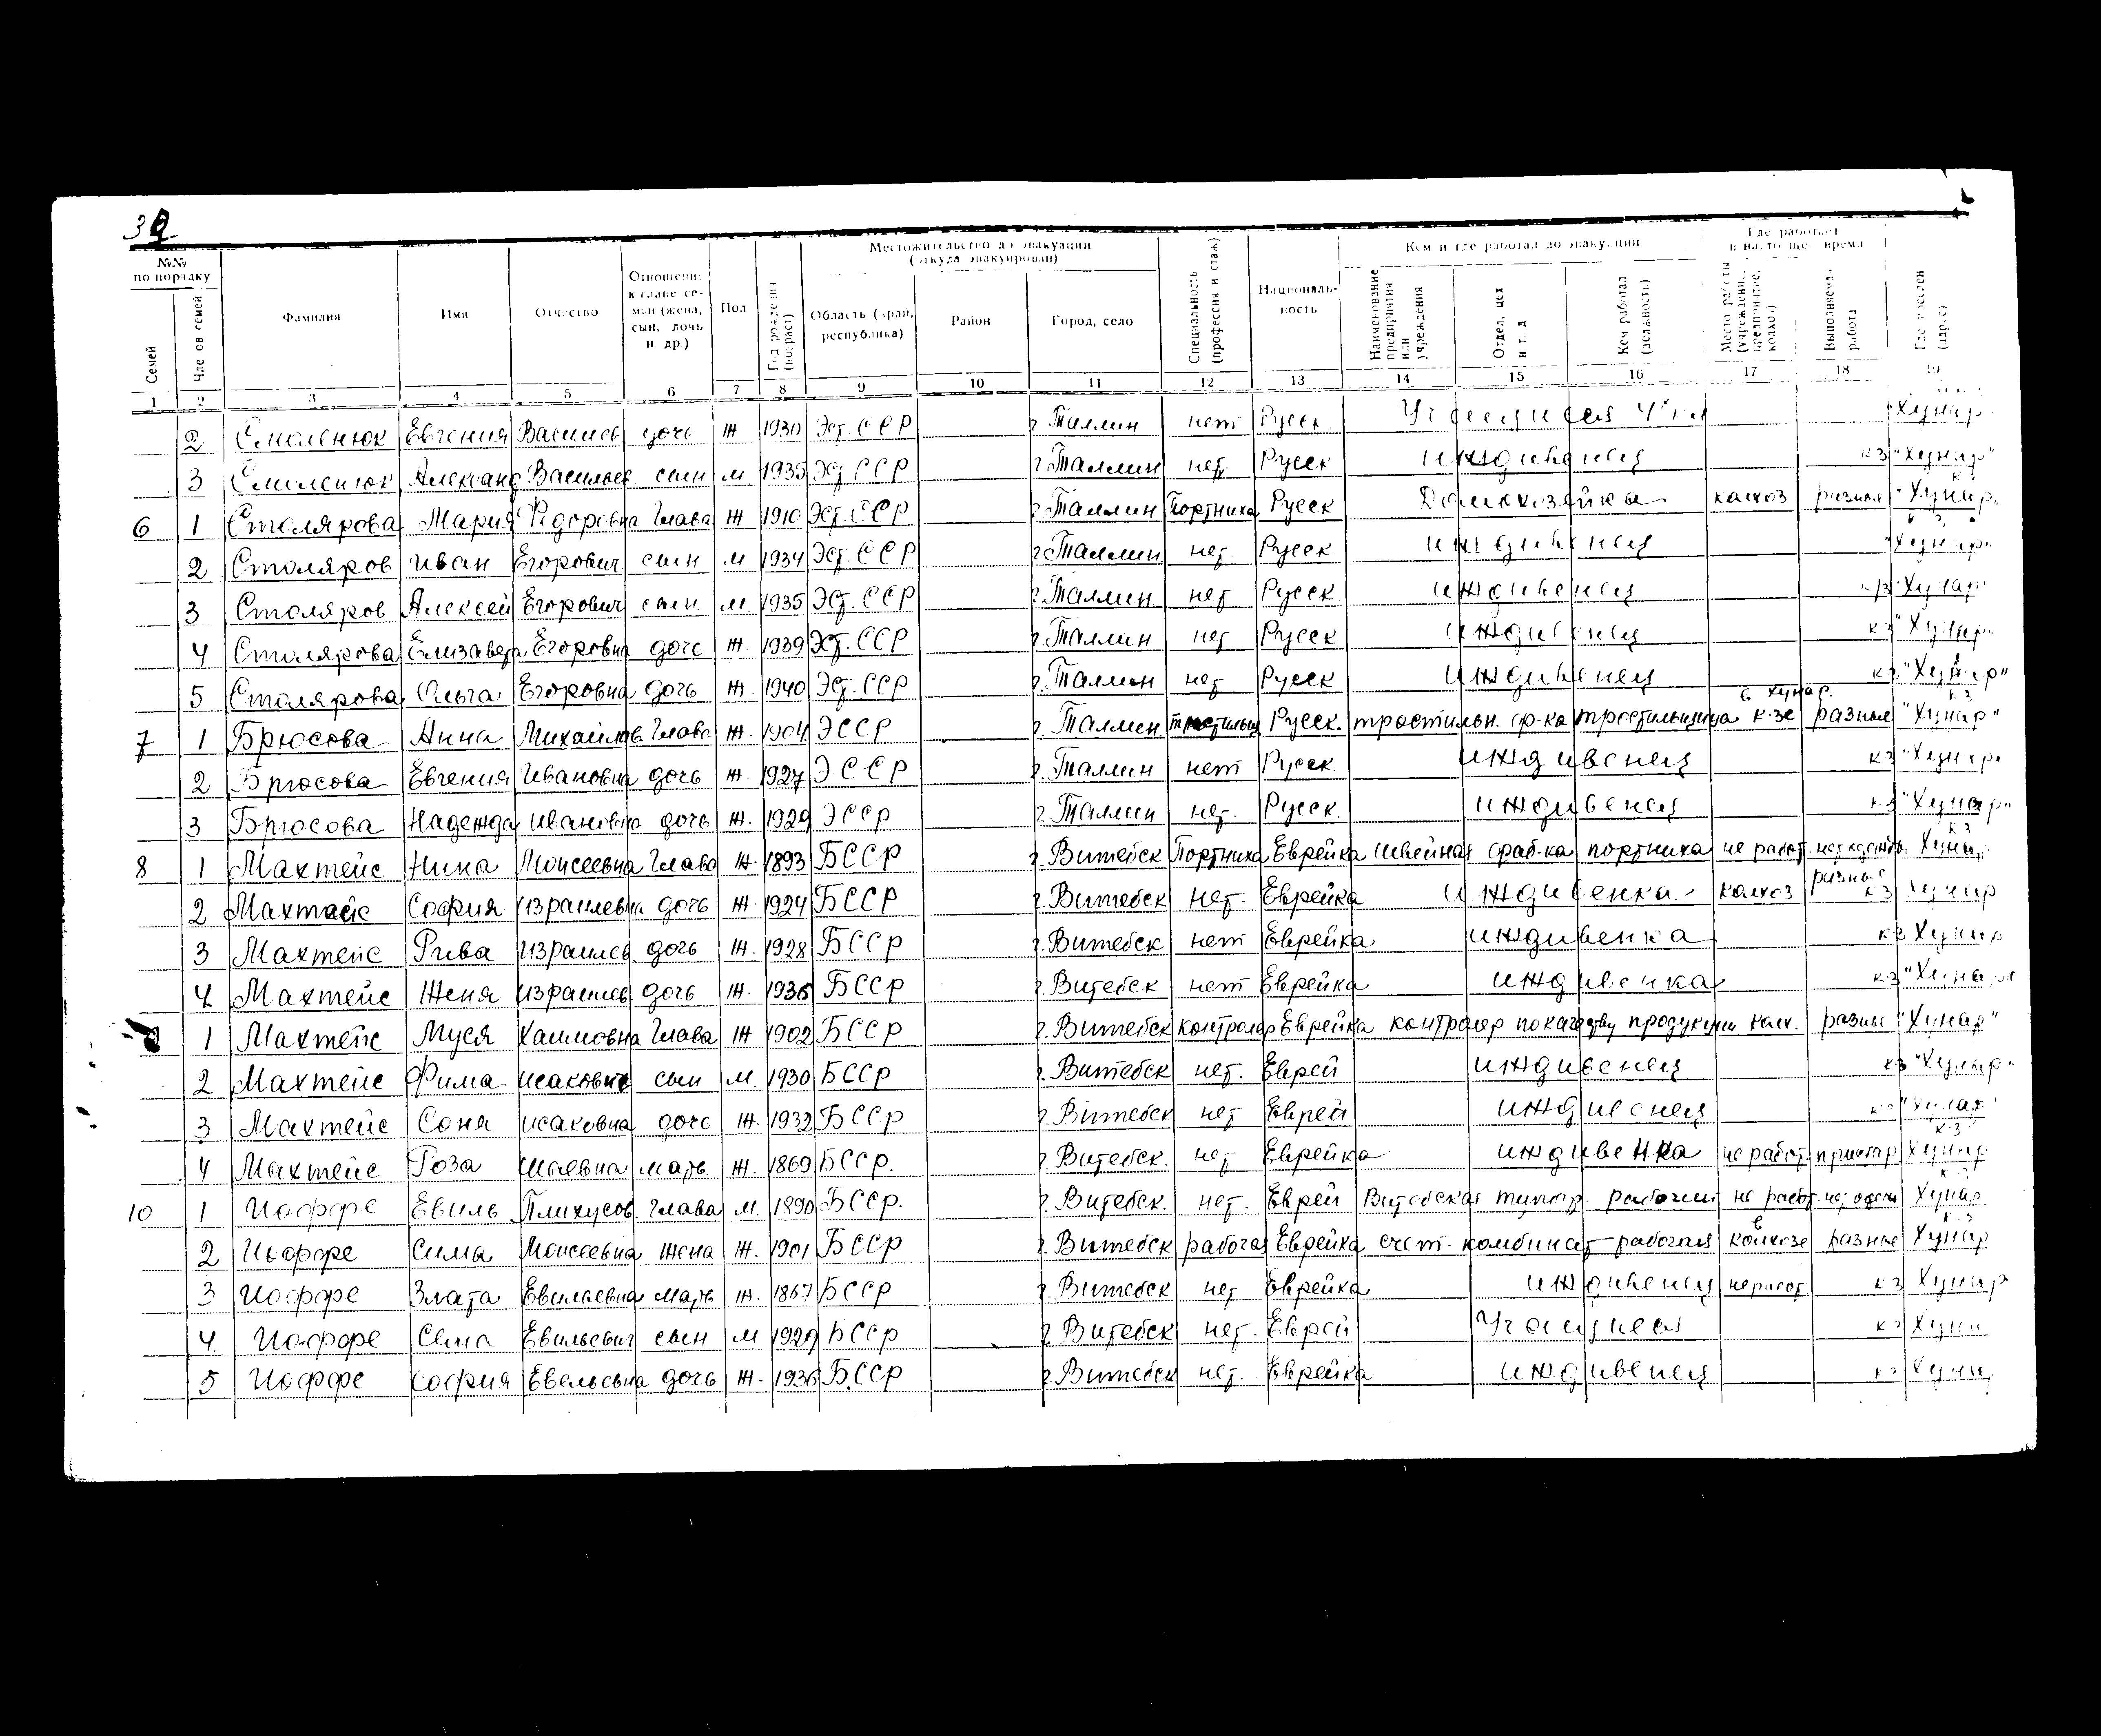 №№ по порядку
Семей
Членов семей
Фамилия
Имя
Отчество
Отношение к главе семьи (жена, сын, дочь и др.)
Пол
Год рождения (возраст)
Местожительство до эвакуации (откуда эвакуирован)
Область (край, республика)
Район
Город, село
Специальность (профессия и стаж)
Националь-ность
Кем и где работал до эвакуации
Наименование предприятия или учреждения
Отдел, цех и т. д
Кем работал (должность)
Где работает в настоящее время
Место работы (учреждение, предприятие, колхоз)
Выполняемая работа
1 2 3 4 5 6 7 8 9 10 11 12 13 14 15 16 17 18 19
2 Смоленюк Евгения Васильев дочь ж 1930 Эст. ССР г. Таллин нет Русск "Хунар"
3 Смоленюк Александ Васильев. сын м 1935 Эст ССР г. Таллин нет Русск иждивенец к з "Хунар"
6 1 Столярова Мария Федоровна Глава ж 1910 Эст. ССР г. Таллин Портниха Русск Домохозяйка колхоз разная к з "Хунар"
2 Столяров Иван Егорович сын м 1934 Эст. ССР г. Таллин нет. Русск иждивенец "Хунар"
3 Столяров Алексей Егорович сын м 1935 Эст. ССР г. Таллин нет Русск иждивенец к/з "Хунар"
4 Столярова Елизавета Егоровна дочь ж. 1939 Эст. ССР г. Таллин нет Русск иждивенец к-з "Хунар"
5 Столярова Ольга Егоровна дочь ж. 1940 Эст. ССР г. Таллин нет Русск иждивенец к з "Хунар"
7 1 Брюсова Анна Михайлов Глава ж. 1904 ЭССР г. Таллин Русск. тростильн. ф-ка тростильщица в Хунар. к-зе разные к з "Хунар"
2 Брюсова Евгения Ивановна дочь ж. 1927 ЭССР г. Таллин нет Русск. иждивенец к з "Хунар"
3 Брюсова Надежда Ивановна дочь ж. 1929 ЭССР г. Таллин нет. Русск. иждивенец к з "Хунар"
8 1 Махтейс Нина Моисеевна Глава ж. 1893 БССР г. Витебск Портниха Еврейка Швейная фаб-ка портниха не работ. к з Хунар
2 Махтейс София Израилевна дочь ж. 1924 БССР г. Витебск нет. Еврейка иждивенка колхоз разные к з Хунар
3 Махтейс Рива Израилев. дочь ж. 1928 БССР г. Витебск нет Еврейка иждивенка к з Хунар
4 Махтейс Женя Израилев дочь ж. 1936 БССР г. Витебск нет Еврейка иждивенка к-з "Хунар"
1 Махтейс Муся Хаимовна Глава ж 1902 БССР г. Витебск контролер Еврейка контролер по качеству продукции колх. разные "Хунар"
2 Махтейс Фима Исакович сын м 1930 БССР г. Витебск нет. Еврей иждивенец к з "Хунар"
3 Махтейс Соня Исаковна дочь ж. 1932 БССР г. Витебск нет Еврей иждивенец к з "Хунар"
4 Махтейс Роза мать ж. 1869 БССР. г. Витебск. нет Еврейка иждивенка не работ. престар к-з Хунар
10 1 Иоффе Евель Глава м. 1890 БССР. г. Витебск. нет. Еврей Витебская типогр. рабочий не работ. Хунар
2 Иоффе Сима Моисеевна жена ж. 1901 БССР г. Витебск рабочая Еврейка комбинат рабочая в колхозе разные к-з Хунар
3 Иоффе Злата Евильевна мать ж. 1867 БССР г. Витебск нет Еврейка иждивенец не работ к з Хунар
4 Иоффе Евильевич сын м 1929 БССР г. Витебск нет. Еврей Учащиеся к з Хунар
5 Иоффе София Евельевна дочь ж. 1936 БССР г. Витебск нет. Еврейка иждивенец к з Хунар